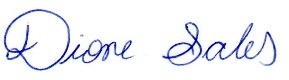 Dione Sales